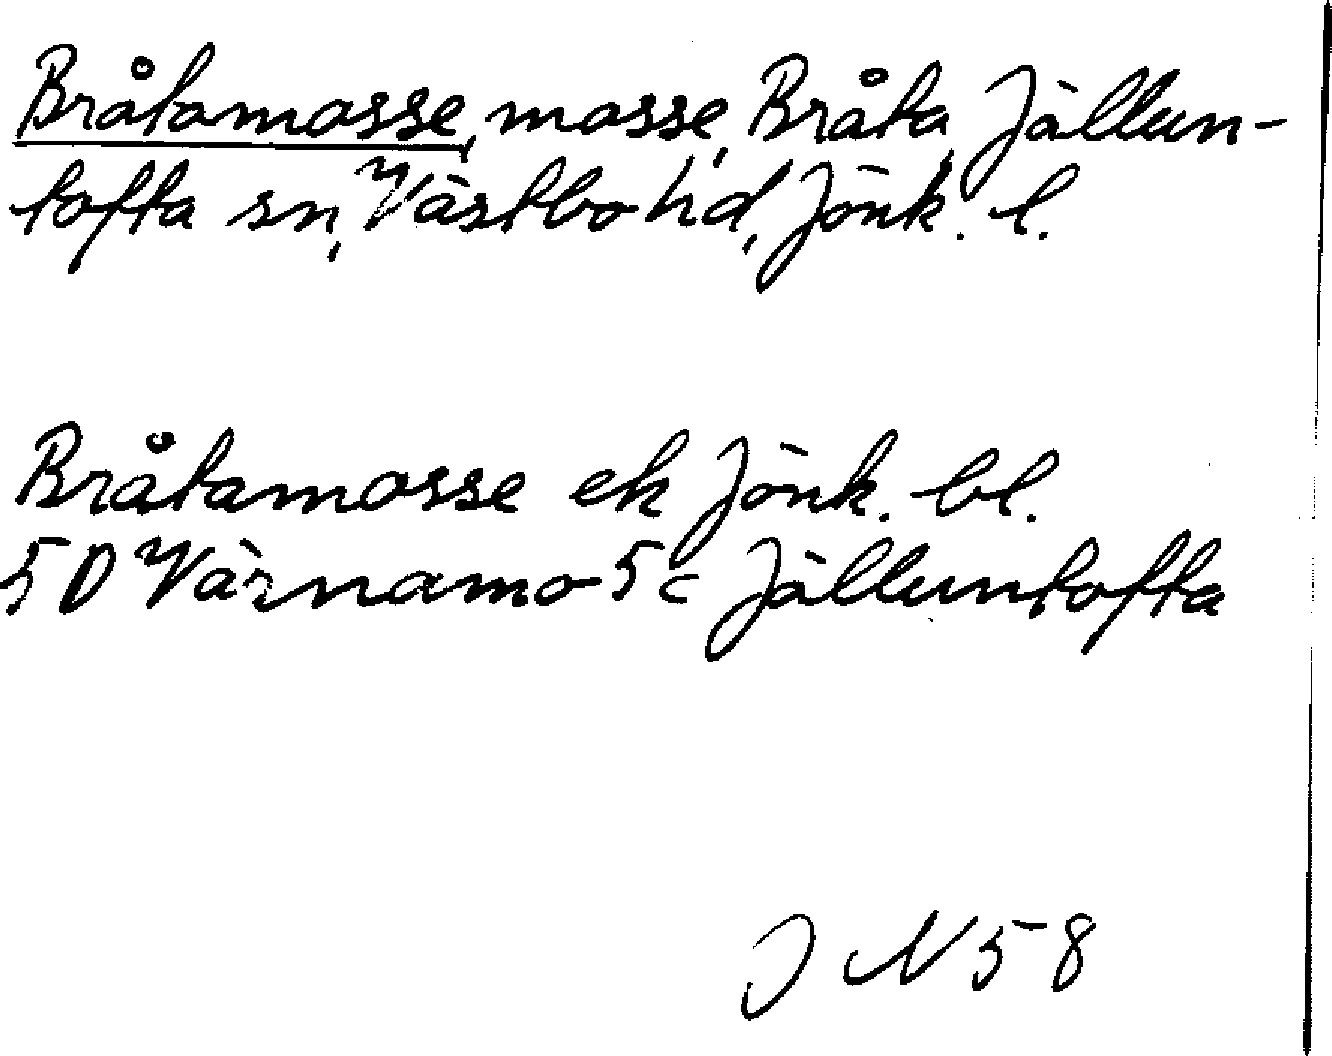 Bråtamosse, mosse, Bråta, Jällun-
tofta sn, Västbo hd, Jönk. l.
Bråtamosse ek Jönk. bl.
5D Värnamo 5c Jälluntofta
J N 58